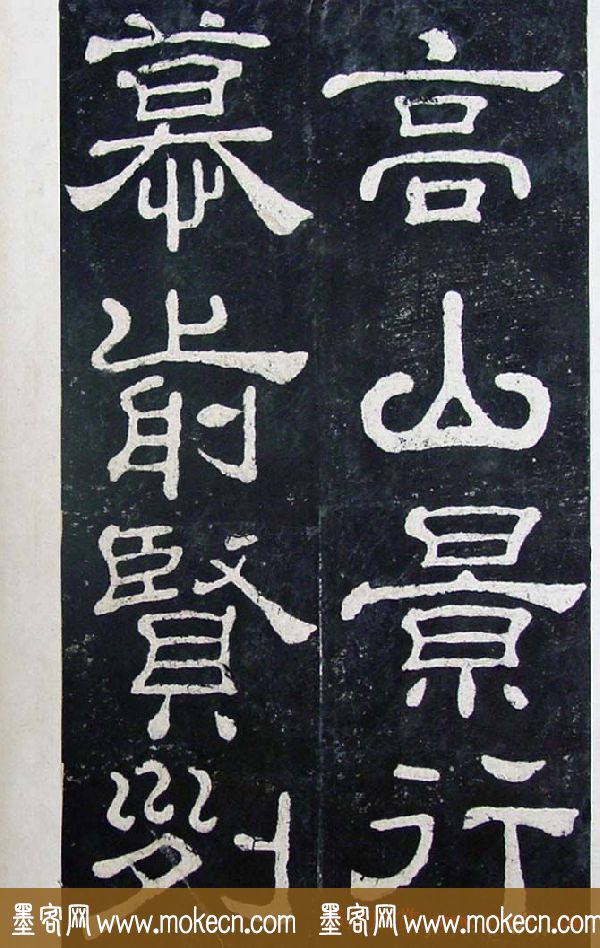 高山景行
慕前賢列
墨客网 www.mokecn.com 墨客网 www.mokecn.com